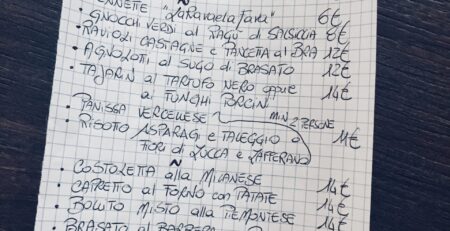 ENNETTE "LaPavaelaFava" 6€
• GNOCCHI VERDI al RAGÙ di SALSICCIA 8€
• RAVIOLI CASTAGNE e PANCETTA al BRA 12€
• AGNOLOTTI al SUGO di BRASATO 12€
• TAJARIN al TARTUFO NERO oppure
a FUNGHI PORCINI 14€
• PANISSA VERCELLESE MIN 2 PERSONE
• RISOTTO ASPARAGI e TALEGGIO o 11€
FIORI di ZUCCA e ZAFFERANO
Ñ
• COSTOLETTA alla MILANESE 14€
• CAPRETTO al FORNO con PATATE 14€
• BOLLITO MISTO alla PIEMONTESE 14€
• BRASATO al BARBERA